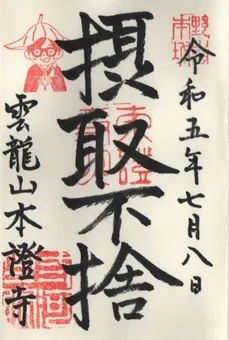 令和五年七月八日
摂取不捨
雲龍山本證寺